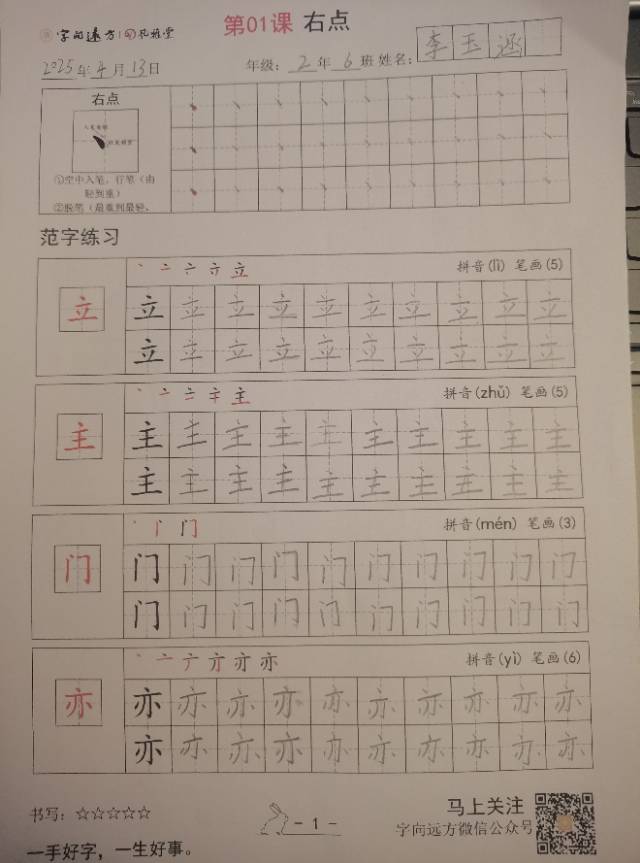 字向远方 孔雅堂
第01课 右点
2025年4月13日 年级：2年6班 姓名：李玉涵
右点
①空中入笔，行笔（由
轻到重）
②脱笔（最重到最轻，
范字练习
立 拼音(lì) 笔画(5)
立 立 立 立 立 立 立 立 立 立
立 立 立 立 立 立 立 立 立 立
主 拼音(zhǔ) 笔画(5)
主 主 主 主 主 主 主 主 主 主
主 主 主 主 主 主 主 主 主 主
门 拼音(mén) 笔画(3)
门 门 门 门 门 门 门 门 门 门
门 门 门 门 门 门 门 门 门 门
亦 拼音(yì) 笔画(6)
亦 亦 亦 亦 亦 亦 亦 亦 亦 亦
亦 亦 亦 亦 亦 亦 亦 亦 亦 亦
书写：☆☆☆☆☆
- 1 -
马上关注
字向远方微信公众号
一手好字，一生好事。